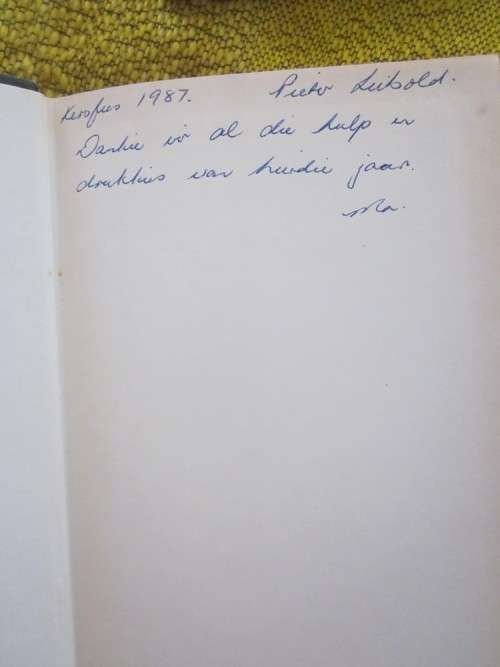 Kersfees 1987. Pieter Leibold.
Dankie vir al die hulp en
drukkies van hierdie jaar.
Ma.